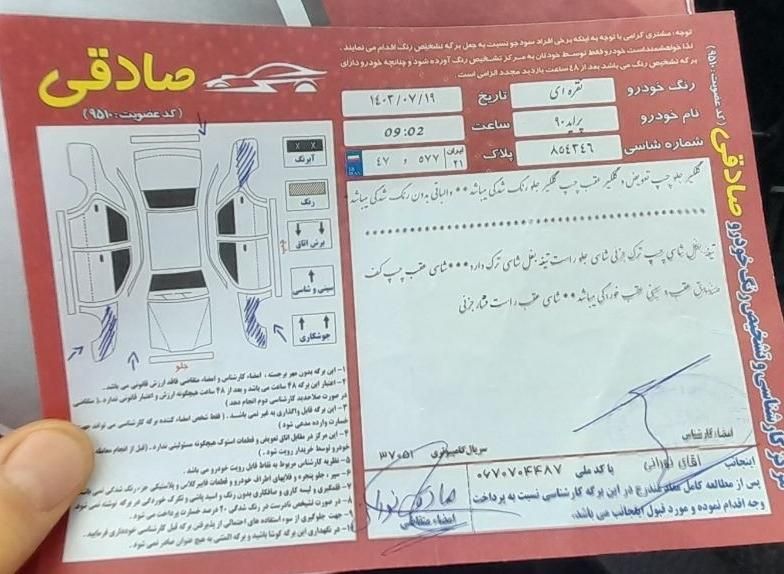 توجه: مشتری گرامی با توجه به اینکه برخی افراد سودجو نسبت به جعل برگه تشخیص رنگ اقدام می نمایند
لذا خواهشمند است خودرو فقط توسط خودتان به مرکز تشخیص رنگ آورده شود و چنانچه خودرو دارای
برگه تشخیص رنگ می باشد بعد از ۴۸ ساعت بازدید مجدد الزامی است.
صادقی
(کد عضویت: ۹۵۱۰)
رنگ خودرو نقره ای تاریخ ۱۴۰۳/۰۷/۱۹
نام خودرو پراید ۹۰ ساعت 09:02
شماره شاسی ۸۵۴۳۴۶ پلاک ایران ۲۱ ۵۷۷ و ۴۷
آبرنگ
رنگ
برش اتاق
سینی و شاسی
جوشکاری
جلو
گلگیر جلو چپ تعویض و گلگیر عقب چپ گلگیر جلو رنگ شدگی میباشد ** والباقی بدون رنگ شدگی میباشد
تیغه بغل شاسی چپ ترک جزئی شاسی جلو راست تیغه بغل شاسی ترک دارد *** شاسی عقب چپ کف
صندوق عقب و سینی عقب خوردگی میباشد ** شاسی عقب راست فشار جزئی
۱- این برگه بدون مهر برجسته، امضاء کارشناسی و امضاء متقاضی فاقد ارزش قانونی می باشد.
۲- اعتبار این برگه ۴۸ ساعت می باشد و بعد از ۴۸ ساعت هیچگونه ارزش و اعتباری قانونی ندارد. (متقاضی
در صورت صلاحدید کارشناسی دوم انجام دهد)
۳- این برگه قابل واگذاری به غیر نمی باشد. (فقط شخص امضاء کننده برگه کارشناسی می تواند جهت
خسارت وارده مدعی شود)
۴- این مرکز در مقابل اتاق تعویض و قطعات استوک هیچگونه مسئولیتی ندارد. (قبل از انجام معامله
خودرو توسط خریدار رویت شود.)
۵- نظریه کارشناس مربوط به نقاط قابل رویت خودرو می باشد.
امضاء کارشناس
سریال کامپیوتری ۳۷۰۵۱
اینجانب آقای نورانی با کد ملی ۰۶۷۰۷۰۴۴۸۷
پس از مطالعه کامل مفاد مندرج در این برگه کارشناسی نسبت به پرداخت
وجه اقدام نموده و مورد قبول اینجانب می باشد.
امضاء متقاضی
مرکز کارشناسی و تشخیص رنگ خودرو صادقی (کد عضویت: ۹۵۱۰)